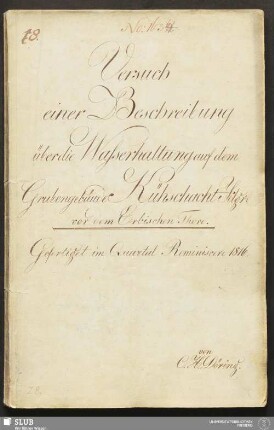 18.
No: 1634.
Versuch
einer Beschreibung
über die Wasserhaltung auf dem
Grubengebäude Kühschacht
vor dem Erbischen Thore.
Gefertigt im Quartal Reminiscere 1816.
von
C. H. Döring.
SLUB